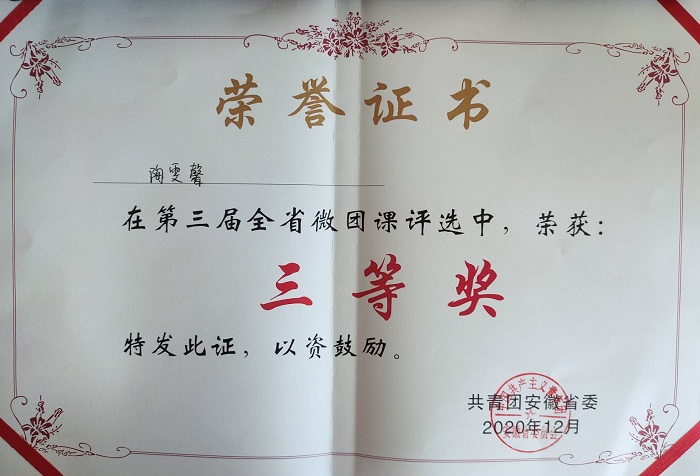 荣誉证书
陶雯馨
在第三届全省微团课评选中，荣获：
三等奖
特发此证，以资鼓励。
共青团安徽省委
2020年12月
安徽省委员会